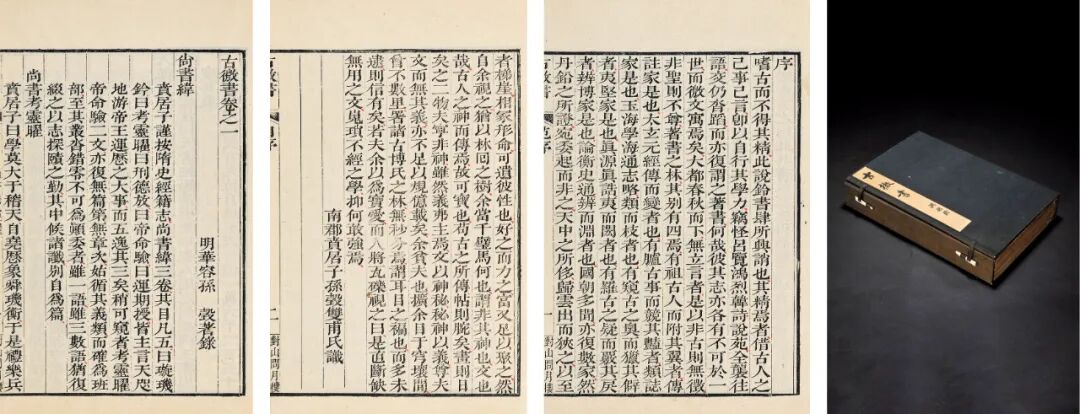 古微書卷之一
明華容孫 瑴著錄
尚書緯
賁居子謹按隋史經籍志尚書緯三卷其目凡五曰琁璣
鈐曰考靈曜曰刑德放曰帝命驗曰運期授皆主言天咫
地游帝王運歷之大事而五逸其三矣稍可窺者考靈曜
帝命驗二文亦復無篇第無章次姑循其義類而確為班
部至其叢沓錯零不可為顚委者雖一語雖三數語猶復
綴之以志探賾之勤其中候諸讖別自為篇
尚書考靈曜
賁居子曰學莫大于稽天自堯歷象舜璣衡于是禮樂兵
者梯崖相家形命可遺彼性也好之而力之富又足以聚之然
自余視之猶以林回之樹余當千璧焉何也謂非其神也文也
哉古人之神而傳焉故可寶也苟古之所傳帖則腕矣畫則目
矣之二物夫寧非神雖然義弗主焉文以神秘神以義尊夫
文而無其義亦不足以規億載矣余貧夫也擴余目于穹壤間
曾不數里署諸古博氏之林無秒分焉謂耳目之禍也而多未
逮則信有矣若夫余以為寶愛而人將瓦礫視之曰是直斷缺
無用之文鬼瑣不經之學抑何敢強焉
南郡賁居子孫瑴雙甫氏識
古微書 自序 二 對山問月樓
序
嗜古而不得其精此說鈴書肆所興誚也其精焉者借古人之
己事己言卽以自行其學力竊怪呂覽鴻烈韓詩說苑全襲往
語交仍沓蹈而亦復謂之著書何哉彼其志亦各有不可於一
世而微文寓焉矣大都春秋而下無立言者是以非古則無徵
非聖則不尊著書之林其別有四焉有祖古人而附其翼者傳
註家是也太玄元經傳而變者也有臚古事而競其豔者類誌
家是也玉海學海通志略類而枝者也有窺古之奧而獵其僻
者夷堅家是也眞源眞誥夷而閎者也有羅古之疑而嚴其戾
者辨博家是也論衡史通辨而淵者也國朝多聞亦復數家然
丹鉛之所證宛委起而非之天中之所侈歸雲出而狹之以至
古微書 序 一 對山問月樓
古微書